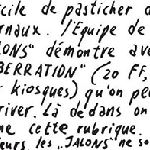 cile de pasticher d
rnaux. l'Équipe de
LONS" démontre ave
BERRATION" (20 FF,
r kiosques) qu'on pe
river. Là dedans on
ne cette rubrique.
eurs les "JALONS" ne so